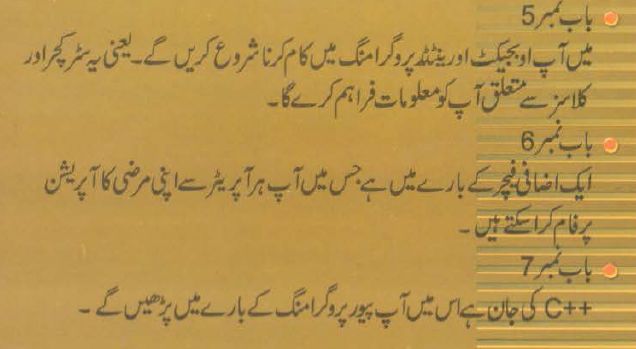 باب نمبر 5
میں آپ اوبجیکٹ اورینٹڈ پروگرامنگ میں کام کرنا شروع کریں گے۔ یعنی یہ سٹرکچر اور
کلاسز سے متعلق آپ کو معلومات فراہم کرے گا۔
باب نمبر 6
ایک اضافی فیچر کے بارے میں ہے جس میں آپ ہر آپریٹر سے اپنی مرضی کا آپریشن
پرفام کرا سکتے ہیں۔
باب نمبر 7
C++ کی جان ہے اس میں آپ پیور پروگرامنگ کے بارے میں پڑھیں گے۔